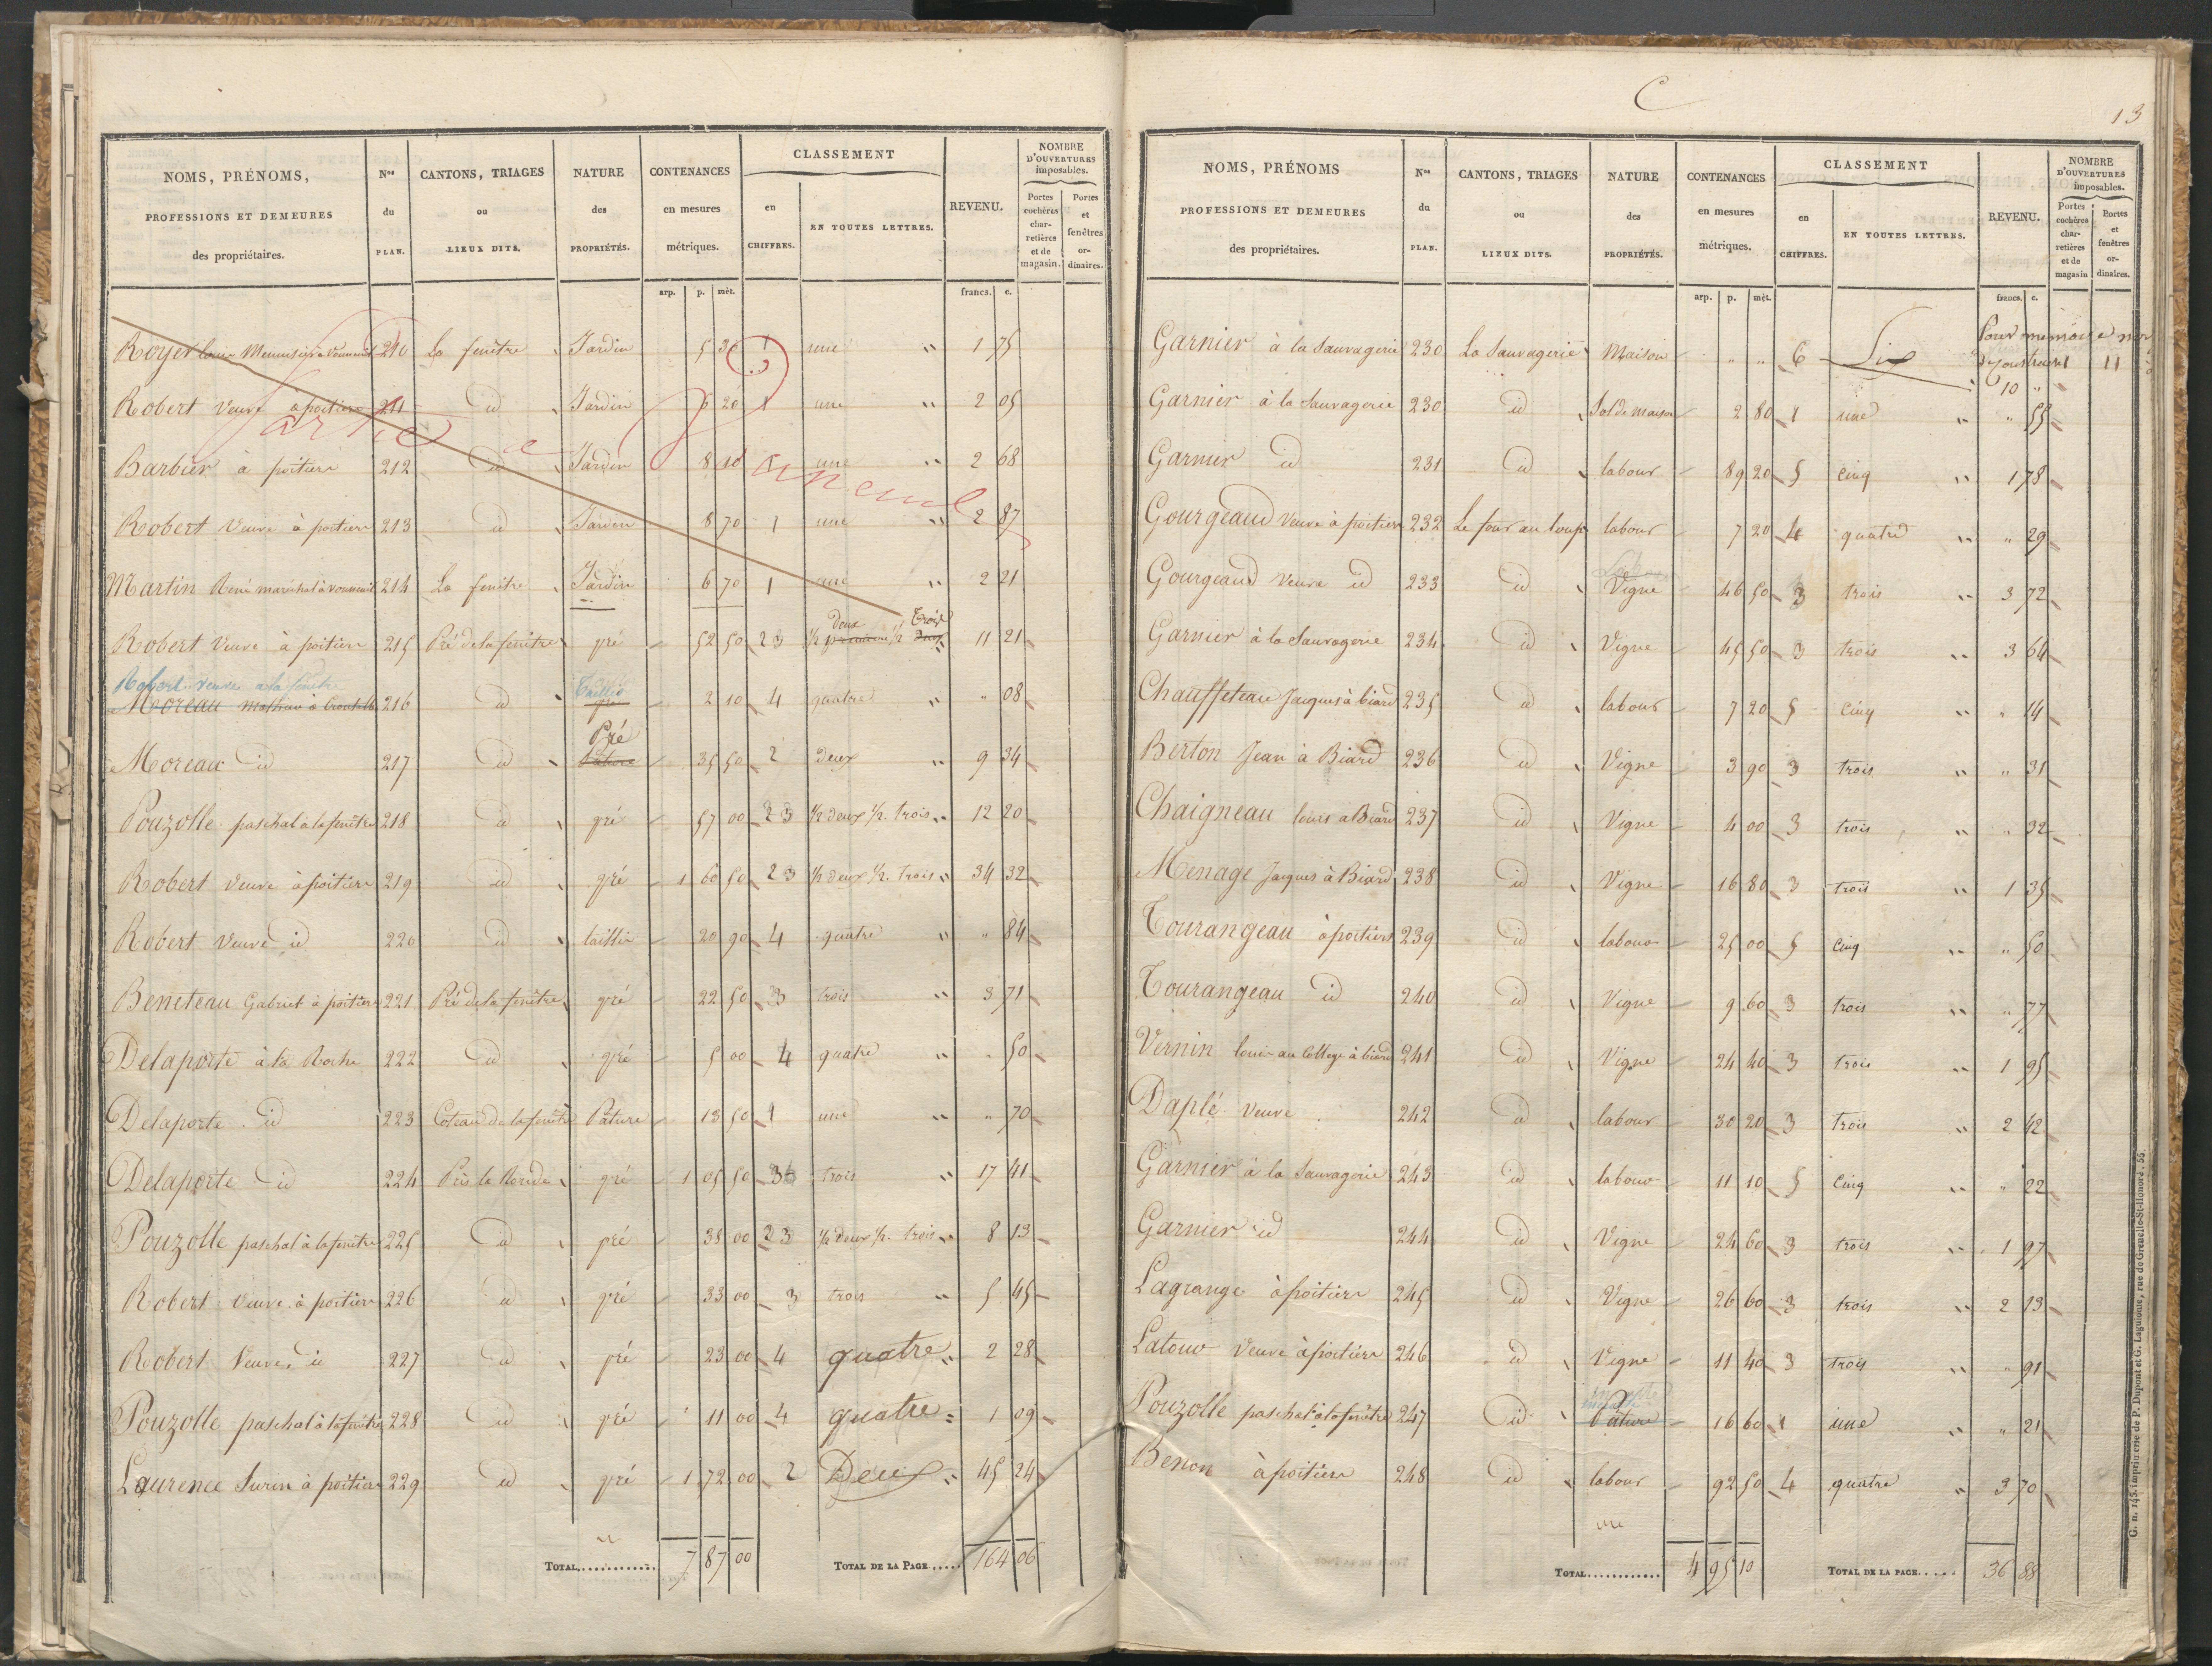 NOMS, PRÉNOMS, PROFESSIONS ET DEMEURES des propriétaires. | Nos du PLAN. | CANTONS, TRIAGES ou LIEUX DITS. | NATURE des PROPRIÉTÉS. | CONTENANCES en mesures métriques. | CLASSEMENT en CHIFFRES. | EN TOUTES LETTRES. | REVENU. | NOMBRE D'OUVERTURES imposables. Portes cochères charretières et de magasin. | Portes et fenêtres ordinaires.
arp. p. mèt. francs. c.
Royer louis Menuisier à Vouneuil 210 La fenêtre Jardin 5 30 1 une " 1 75
Robert Veuve à poitiers 211 id Jardin 6 20 1 une " 2 05
Barbier à poitiers 212 id Jardin 8 10 1 une " 2 68
Robert Veuve à poitiers 213 id Jardin 8 70 1 une " 2 87
Martin René maréchal à Vouneuil 214 La fenêtre Jardin 6 70 1 une " 2 21
deux Trois
Robert Veuve à poitiers 215 Pré de la fenêtre pré 52 50 2 3 1/2 1/2 11 21
Robert Veuve à la fenêtre Taillis
Moreau Mathieu à Croutelle 216 id pré 2 10 4 quatre " " 08
Pré
Moreau id 217 id Pature 35 50 2 Deux " 9 34
Pouzolle paschal à la fenêtre 218 id pré 57 00 2 3 1/2 deux 1/2 trois " 12 20
Robert Veuve à poitiers 219 id pré 1 60 50 2 3 1/2 deux 1/2 trois " 34 32
Robert Veuve id 220 id taillis 20 90 4 quatre " " 84
Beneteau Gabriel à poitiers 221 Pré de la fenêtre pré 22 50 3 trois " 3 71
Delaporte à la Roche 222 id pré 5 00 4 quatre " " 50
Delaporte id 223 Coteau de la fenêtre Pature 13 50 1 une " " 70
Delaporte id 224 pré 1 05 50 3 trois " 17 41
Pouzolle paschal à la fenêtre 225 id pré 38 00 2 3 1/2 deux 1/2 trois " 8 13
Robert Veuve à poitiers 226 id pré 33 00 3 trois " 5 45
Robert Veuve id 227 id pré 23 00 4 quatre " 2 28
Pouzolle paschal à la fenêtre 228 id pré 11 00 4 quatre = 1 09
Laurence Surin à poitiers 229 id pré 1 72 00 2 Deux " 45 24
TOTAL............ 7 87 00 TOTAL DE LA PAGE..... 164 06
C
13
NOMS, PRÉNOMS PROFESSIONS ET DEMEURES des propriétaires. | Nos du PLAN. | CANTONS, TRIAGES ou LIEUX DITS. | NATURE des PROPRIÉTÉS. | CONTENANCES en mesures métriques. | CLASSEMENT en CHIFFRES. | EN TOUTES LETTRES. | REVENU. | NOMBRE D'OUVERTURES imposables. Portes cochères charretières et de magasin | Portes et fenêtres ordinaires.
arp. p. mèt. francs. c.
Garnier à la Sauvagerie 230 La Sauvagerie Maison " " 6 Six Pour mémoire 11
10 "
Garnier à la Sauvagerie 230 id Sol de maison 2 80 1 une " " 55
Garnier id 231 id labour 89 20 5 cinq " 1 78
Gourgeaud Veuve à poitiers 232 Le four au loup labour 7 20 4 quatre " " 29
Gourgeaud Veuve id 233 id Vigne 46 50 3 trois " 3 72
Garnier à la Sauvagerie 234 id Vigne 45 50 3 trois " 3 64
Chauffeteau Jacques à biard 235 id labour 7 20 5 Cinq " " 14
Berton Jean à Biard 236 id Vigne 3 90 3 trois " " 31
Chaigneau louis à Biard 237 id Vigne 4 00 3 trois " " 32
Menage Jacques à Biard 238 id Vigne 16 80 3 trois " 1 35
Tourangeau à poitiers 239 id labour 25 00 5 Cinq " " 50
Tourangeau id 240 id Vigne 9 60 3 trois " " 77
Vernin louis au College à biard 241 id Vigne 24 40 3 trois " 1 95
Daplé Veuve 242 id labour 30 20 3 trois " 2 42
Garnier à la Sauvagerie 243 id labour 11 10 5 Cinq " " 22
Garnier id 244 id Vigne 24 60 3 trois " 1 97
Lagrange à poitiers 245 id Vigne 26 60 3 trois " 2 13
Latour Veuve à poitiers 246 id Vigne 11 40 3 trois " " 91
Pouzolle paschal à la fenêtre 247 id Pature 16 60 1 une " " 21
Benon à poitiers 248 id labour 92 50 4 quatre " 3 70
TOTAL............ 4 95 10 TOTAL DE LA PAGE..... 36 88
G. n. 145. imprimerie de P. Dupont et G. Laguionie, rue de Grenelle-St-Honoré, 55.